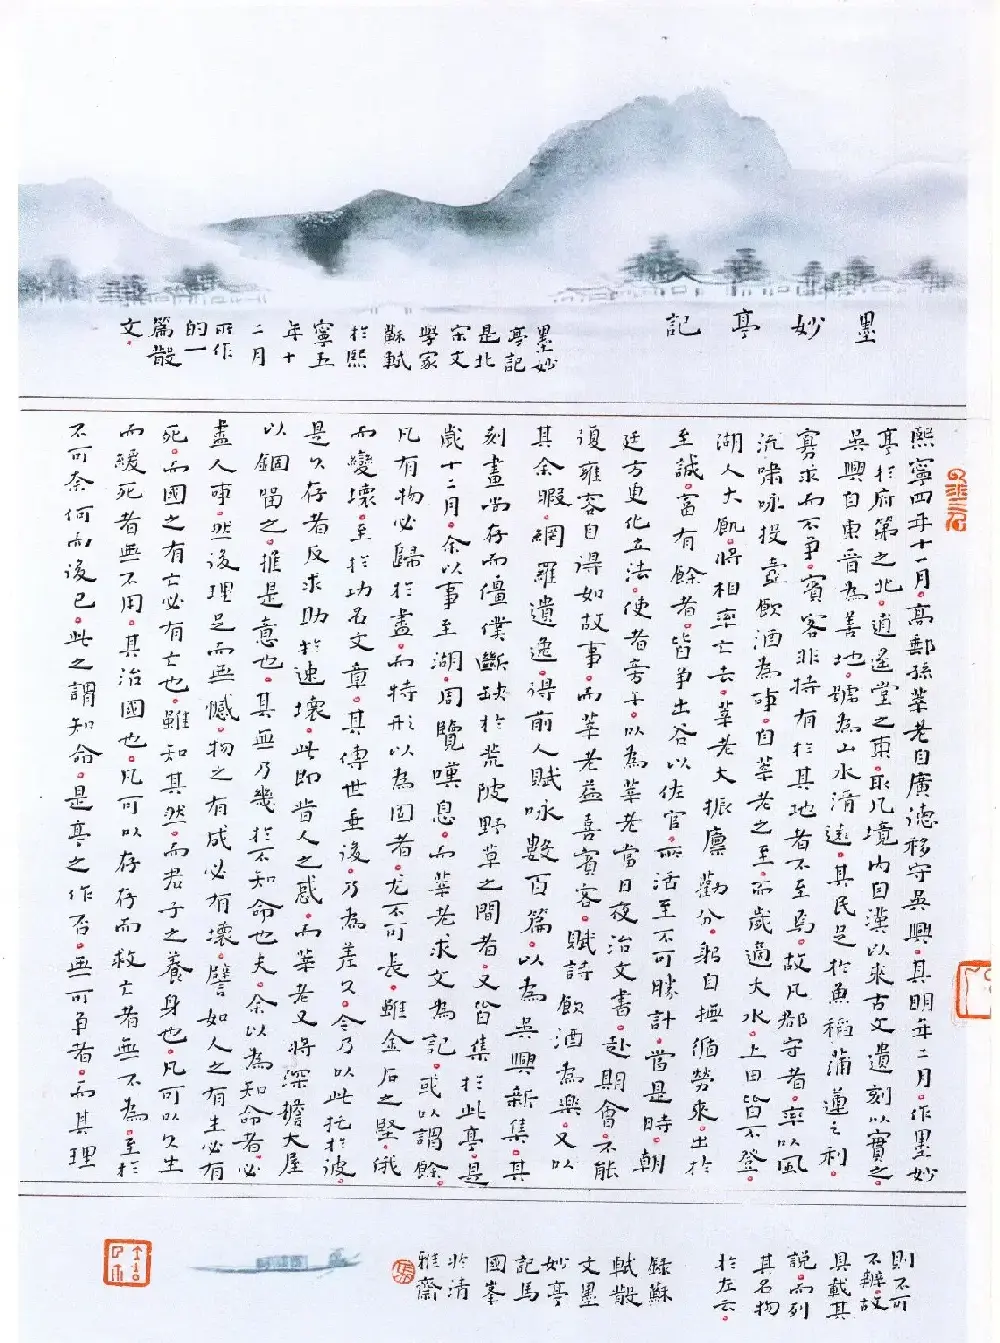 墨妙亭記
墨妙
亭記
是北
宋文
學家
蘇軾
於熙
寧五
年十
二月
所作
的一
篇散
文。
熙寧四年十一月。高郵孫莘老自廣德移守吳興。其明年二月。作墨妙
亭於府第之北。逍遙堂之東。取凡境內自漢以來古文遺刻以實之。
吳興自東晉為善地。號為山水清遠。其民足於魚稻蒲蓮之利
寡求而不爭。賓客非特有於其地者不至焉。故凡郡守者。率以風
沉嘯咏投壺飲酒為事。自莘老之至。而歲適大水。上田皆不登。
湖人大飢。將相率亡去。莘老大振廪勸分。躬自撫循勞來。出於
至誠。富有餘者。皆爭出谷以佐官。所活至不可勝計。當是時。朝
廷方更化立法。使者旁午。以為莘老當日夜治文書。赴期會。不能
復雍容自得如故事。而莘老益喜賓客。賦詩飲酒為樂。又以
其余暇。網羅遺逸。得前人賦咏數百篇。以為吳興新集。其
刻畫尚存而僵僕斷缺於荒陂野草之間者。又皆集於此亭。是
歲十二月。余以事至湖。周覽嘆息。而莘老求文為記。或以謂餘。
凡有物必歸於盡。而特形以為固者。尤不可長。雖金石之堅。俄
而變壞。至於功名文章。其傳世垂後。乃為差久。今乃以此托於彼。
是久存者反求助於速壞。此即昔人之惑。而莘老又將深檐大屋
以錮留之。推是意也。其無乃幾於不知命也夫。余以為知命者。必
盡人事。然後理足而無憾。物之有成必有壞。譬如人之有生必有
死。而國之有亡必有亡也。雖知其然。而君子之養身也。凡可以久生
而緩死者無不用。其治國也。凡可以存存而救亡者無不為。至於
不可奈何而後已。此之謂知命。是亭之作否。無可爭者。而其理
則不可
不辨。故
具載其
說。而列
其名物
於左云。
錄蘇
軾散
文墨
妙亭
記馬
國峯
於清
雅齋